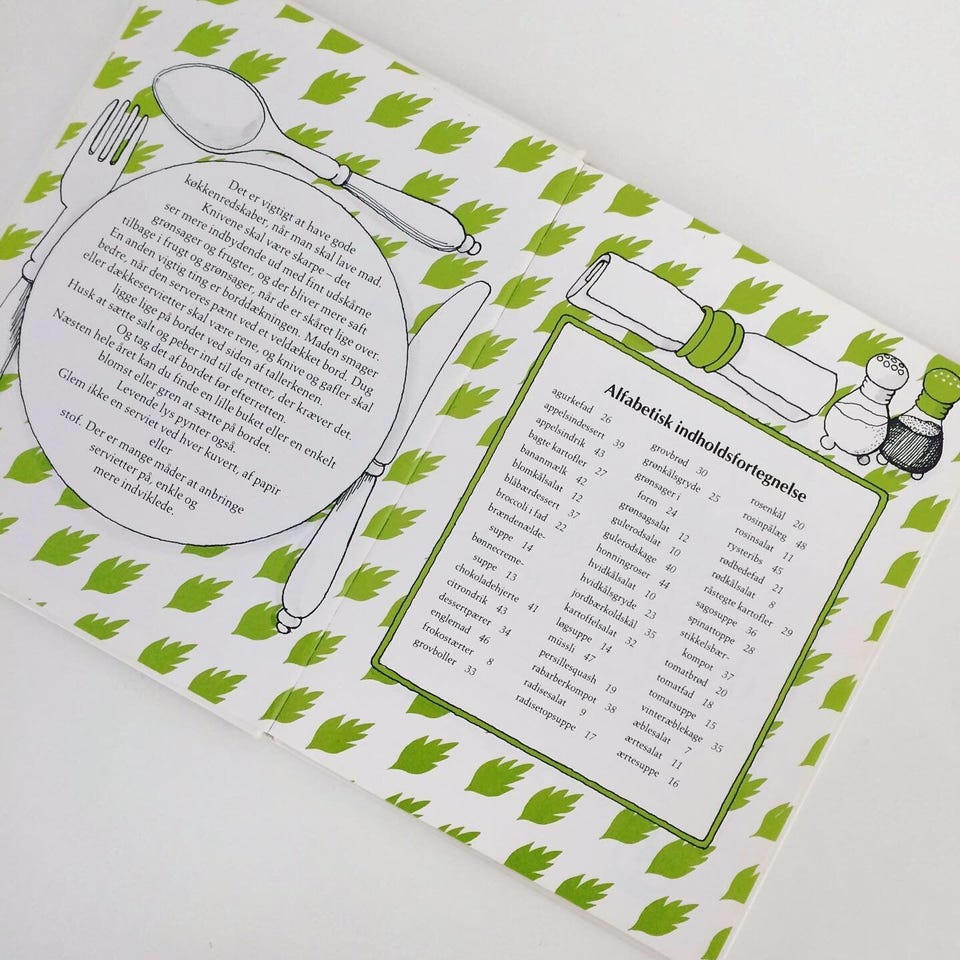 Det er vigtigt at have gode
køkkenredskaber, når man skal lave mad.
Knivene skal være skarpe – det
ser mere indbydende ud med fint udskårne
grønsager og frugter, og der bliver mere saft
tilbage i frugt og grønsager, når de er skåret lige over.
En anden vigtig ting er borddækningen. Maden smager
bedre, når den serveres pænt ved et veldækket bord. Dug
eller dækkeservietter skal være rene, og knive og gafler skal
ligge lige på bordet ved siden af tallerkenen.
Husk at sætte salt og peber ind til de retter, der kræver det.
Og tag det af bordet før efterretten.
Næsten hele året kan du finde en lille buket eller en enkelt
blomst eller gren at sætte på bordet.
Levende lys pynter også.
Glem ikke en serviet ved hver kuvert, af papir
eller
stof. Der er mange måder at anbringe
servietter på, enkle og
mere indviklede.
Alfabetisk indholdsfortegnelse
agurkefad 26
appelsindessert 39
appelsindrik 43
bagte kartofler 27
bananmælk 42
blomkålsalat 12
blåbærdessert 37
broccoli i fad 22
brændenælde-
suppe 14
bønnecreme-
suppe 13
chokoladehjerte 41
citrondrik 43
dessertpærer 34
englemad 46
frokostærter 8
grovboller 33
grovbrød 30
grønkålsgryde 25
grønsager i
form 24
grønsagsalat 12
gulerodsalat 10
gulerodskage 40
honningroser 44
hvidkålsalat 10
hvidkålsgryde 23
jordbærkoldskål 35
kartoffelsalat 32
løgsuppe 14
müssli 47
persillesquash 19
rabarberkompot 38
radisesalat 9
radisetopsuppe 17
rosenkål 20
rosinpålæg 48
rosinsalat 11
rysteribs 45
rødbedefad 21
rødkålsalat 8
råstegte kartofler 29
sagosuppe 36
spinattoppe 28
stikkelsbær-
kompot 37
tomatbrød 20
tomatfad 18
tomatsuppe 15
vinteræblekage 35
æblesalat 7
ærtesalat 11
ærtesuppe 16